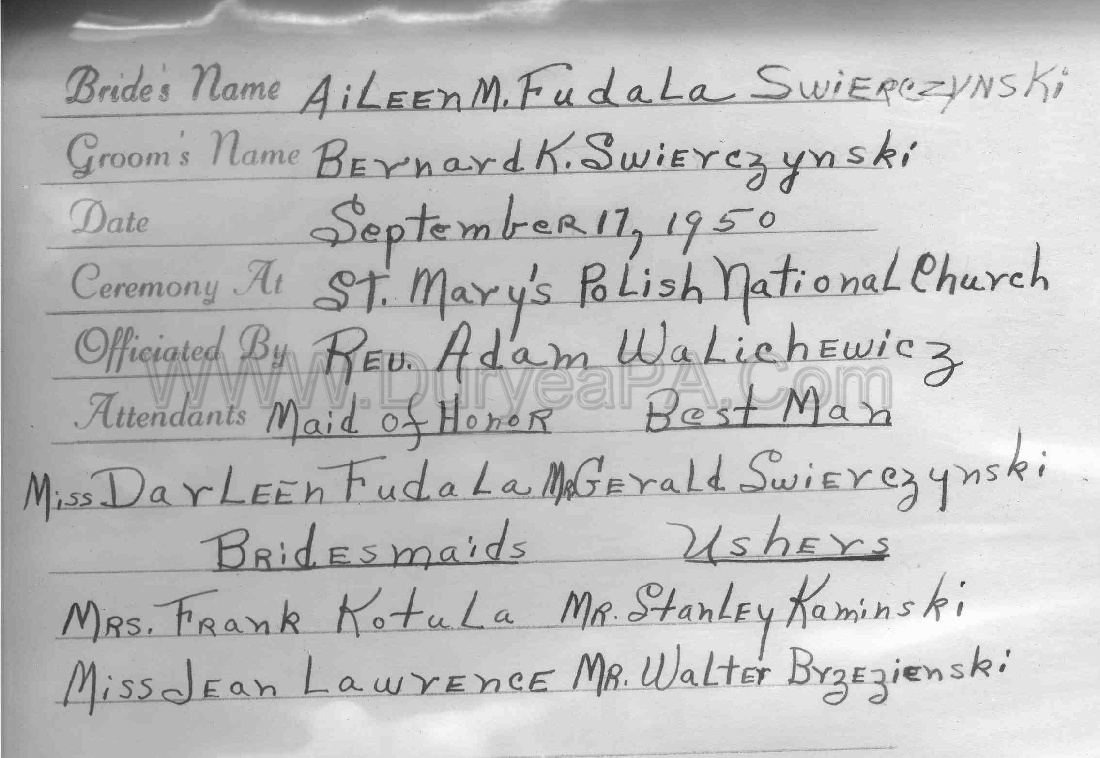 Bride's Name Aileen M. Fudala Swierczynski
Groom's Name Bernard K. Swierczynski
Date September 17, 1950
Ceremony At St. Mary's Polish National Church
Officiated By Rev. Adam Walichewicz
www.DuryeaPA.Com
Attendants Maid of Honor Best Man
Miss Darleen Fudala Mr. Gerald Swierczynski
Bridesmaids Ushers
Mrs. Frank Kotula Mr. Stanley Kaminski
Miss Jean Lawrence Mr. Walter Brzezienski